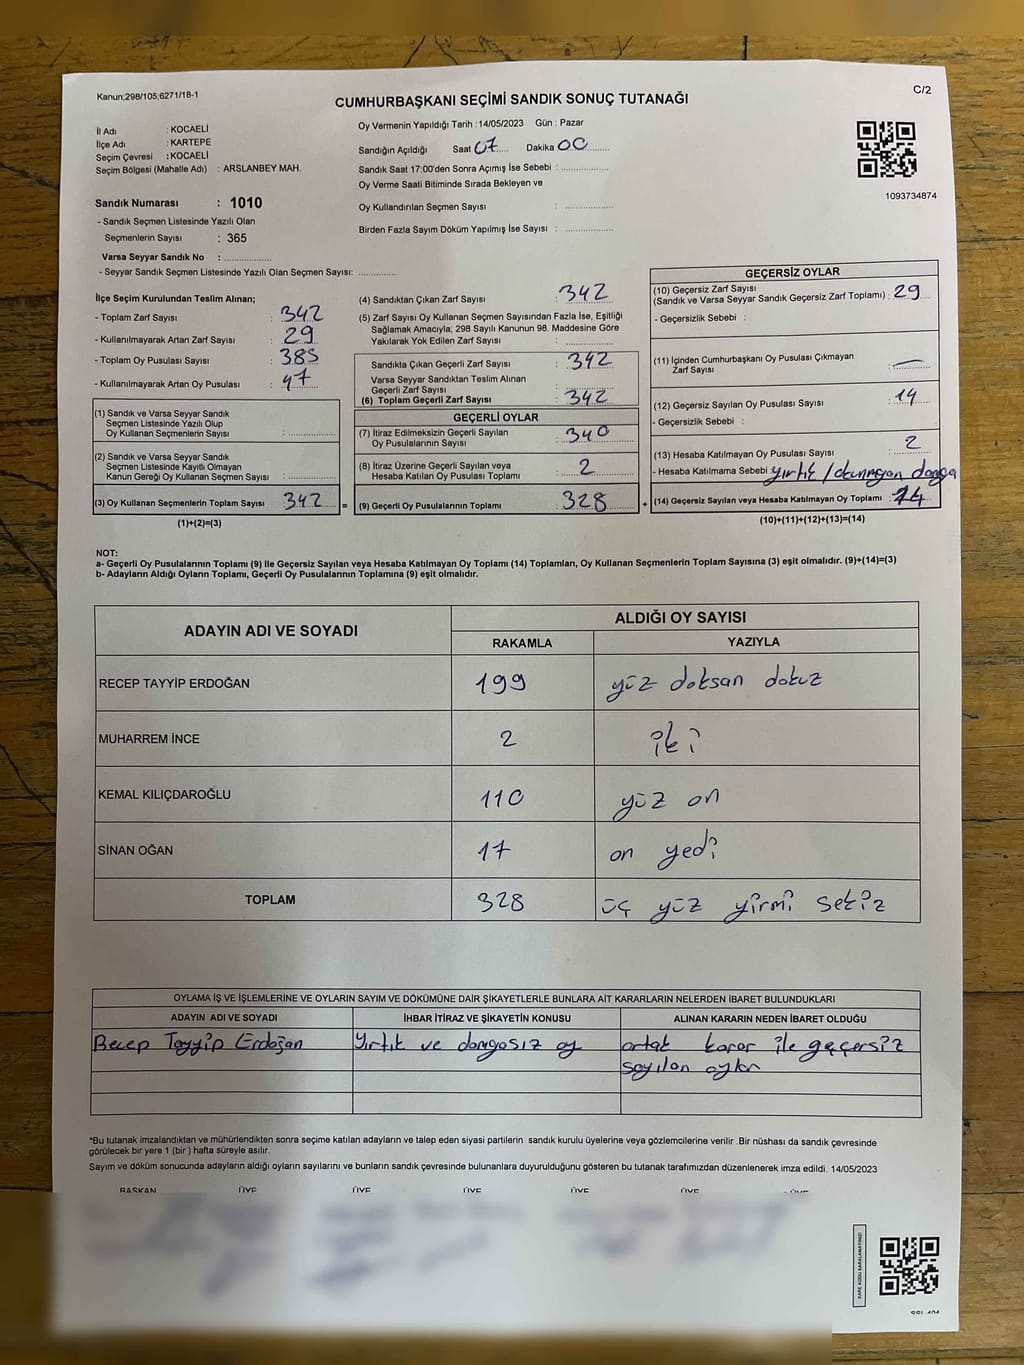 Kanun;298/105;6271/18-1
C/2
CUMHURBAŞKANI SEÇİMİ SANDIK SONUÇ TUTANAĞI
İl Adı : KOCAELİ
İlçe Adı : KARTEPE
Seçim Çevresi : KOCAELİ
Seçim Bölgesi (Mahalle Adı) : ARSLANBEY MAH.
Sandık Numarası : 1010
- Sandık Seçmen Listesinde Yazılı Olan
Seçmenlerin Sayısı : 365
Varsa Seyyar Sandık No : ..............
- Seyyar Sandık Seçmen Listesinde Yazılı Olan Seçmen Sayısı: ............
Oy Vermenin Yapıldığı Tarih :14/05/2023 Gün : Pazar
Sandığın Açıldığı Saat 07 Dakika 00
Sandık Saat 17:00'den Sonra Açımış İse Sebebi : ..............
Oy Verme Saati Bitiminde Sırada Bekleyen ve
Oy Kullandırılan Seçmen Sayısı : ..............
Birden Fazla Sayım Döküm Yapılmış İse Sayısı : ..............
1093734874
İlçe Seçim Kurulundan Teslim Alınan;
- Toplam Zarf Sayısı : 342
- Kullanılmayarak Artan Zarf Sayısı : 29
- Toplam Oy Pusulası Sayısı : 385
- Kullanılmayarak Artan Oy Pusulası : 47
(1) Sandık ve Varsa Seyyar Sandık
Seçmen Listesinde Yazılı Olup
Oy Kullanan Seçmenlerin Sayısı : ..............
(2) Sandık ve Varsa Seyyar Sandık
Seçmen Listesinde Kayıtlı Olmayan
Kanun Gereği Oy Kullanan Seçmen Sayısı : ..............
(3) Oy Kullanan Seçmenlerin Toplam Sayısı : 342 =
(1)+(2)=(3)
(4) Sandıktan Çıkan Zarf Sayısı : 342
(5) Zarf Sayısı Oy Kullanan Seçmen Sayısından Fazla İse, Eşitliği
Sağlamak Amacıyla; 298 Sayılı Kanunun 98. Maddesine Göre
Yakılarak Yok Edilen Zarf Sayısı : ..............
Sandıkta Çıkan Geçerli Zarf Sayısı : 342
Varsa Seyyar Sandıktan Teslim Alınan
Geçerli Zarf Sayısı
(6) Toplam Geçerli Zarf Sayısı : 342
GEÇERLİ OYLAR
(7) İtiraz Edilmeksizin Geçerli Sayılan
Oy Pusulalarının Sayısı : 340
(8) İtiraz Üzerine Geçerli Sayılan veya
Hesaba Katılan Oy Pusulası Toplamı : 2
(9) Geçerli Oy Pusulalarının Toplamı : 328 +
GEÇERSİZ OYLAR
(10) Geçersiz Zarf Sayısı
(Sandık ve Varsa Seyyar Sandık Geçersiz Zarf Toplamı) : 29
- Geçersizlik Sebebi :
(11) İçinden Cumhurbaşkanı Oy Pusulası Çıkmayan
Zarf Sayısı : —
(12) Geçersiz Sayılan Oy Pusulası Sayısı : 14
- Geçersizlik Sebebi :
(13) Hesaba Katılmayan Oy Pusulası Sayısı : 2
- Hesaba Katılmama Sebebi yırtık / okunmayan damga
(14) Geçersiz Sayılan veya Hesaba Katılmayan Oy Toplamı : 14
(10)+(11)+(12)+(13)=(14)
NOT:
a- Geçerli Oy Pusulalarının Toplamı (9) İle Geçersiz Sayılan veya Hesaba Katılmayan Oy Toplamı (14) Toplamları, Oy Kullanan Seçmenlerin Toplam Sayısına (3) eşit olmalıdır. (9)+(14)=(3)
b- Adayların Aldığı Oyların Toplamı, Geçerli Oy Pusulalarının Toplamına (9) eşit olmalıdır.
ADAYIN ADI VE SOYADI ALDIĞI OY SAYISI
RAKAMLA YAZIYLA
RECEP TAYYİP ERDOĞAN 199 yüz doksan dokuz
MUHARREM İNCE 2 iki
KEMAL KILIÇDAROĞLU 110 yüz on
SİNAN OĞAN 17 on yedi
TOPLAM 328 üç yüz yirmi sekiz
OYLAMA İŞ VE İŞLEMLERİNE VE OYLARIN SAYIM VE DÖKÜMÜNE DAİR ŞİKAYETLERLE BUNLARA AİT KARARLARIN NELERDEN İBARET BULUNDUKLARI
ADAYIN ADI VE SOYADI İHBAR İTİRAZ VE ŞİKAYETİN KONUSU ALINAN KARARIN NEDEN İBARET OLDUĞU
Recep Tayyip Erdoğan Yırtık ve damgasız oy ortak karar ile geçersiz
sayılan oylar
*Bu tutanak imzalandıktan ve mühürlendikten sonra seçime katılan adayların ve talep eden siyasi partilerin sandık kurulu üyelerine veya gözlemcilerine verilir .Bir nüshası da sandık çevresinde
görülecek bir yere 1 (bir ) hafta süreyle asılır.
Sayım ve döküm sonucunda adayların aldığı oyların sayılarını ve bunların sandık çevresinde bulunanlara duyurulduğunu gösteren bu tutanak tarafımızdan düzenlenerek imza edildi. 14/05/2023
BAŞKAN ÜYE ÜYE ÜYE ÜYE ÜYE ÜYE